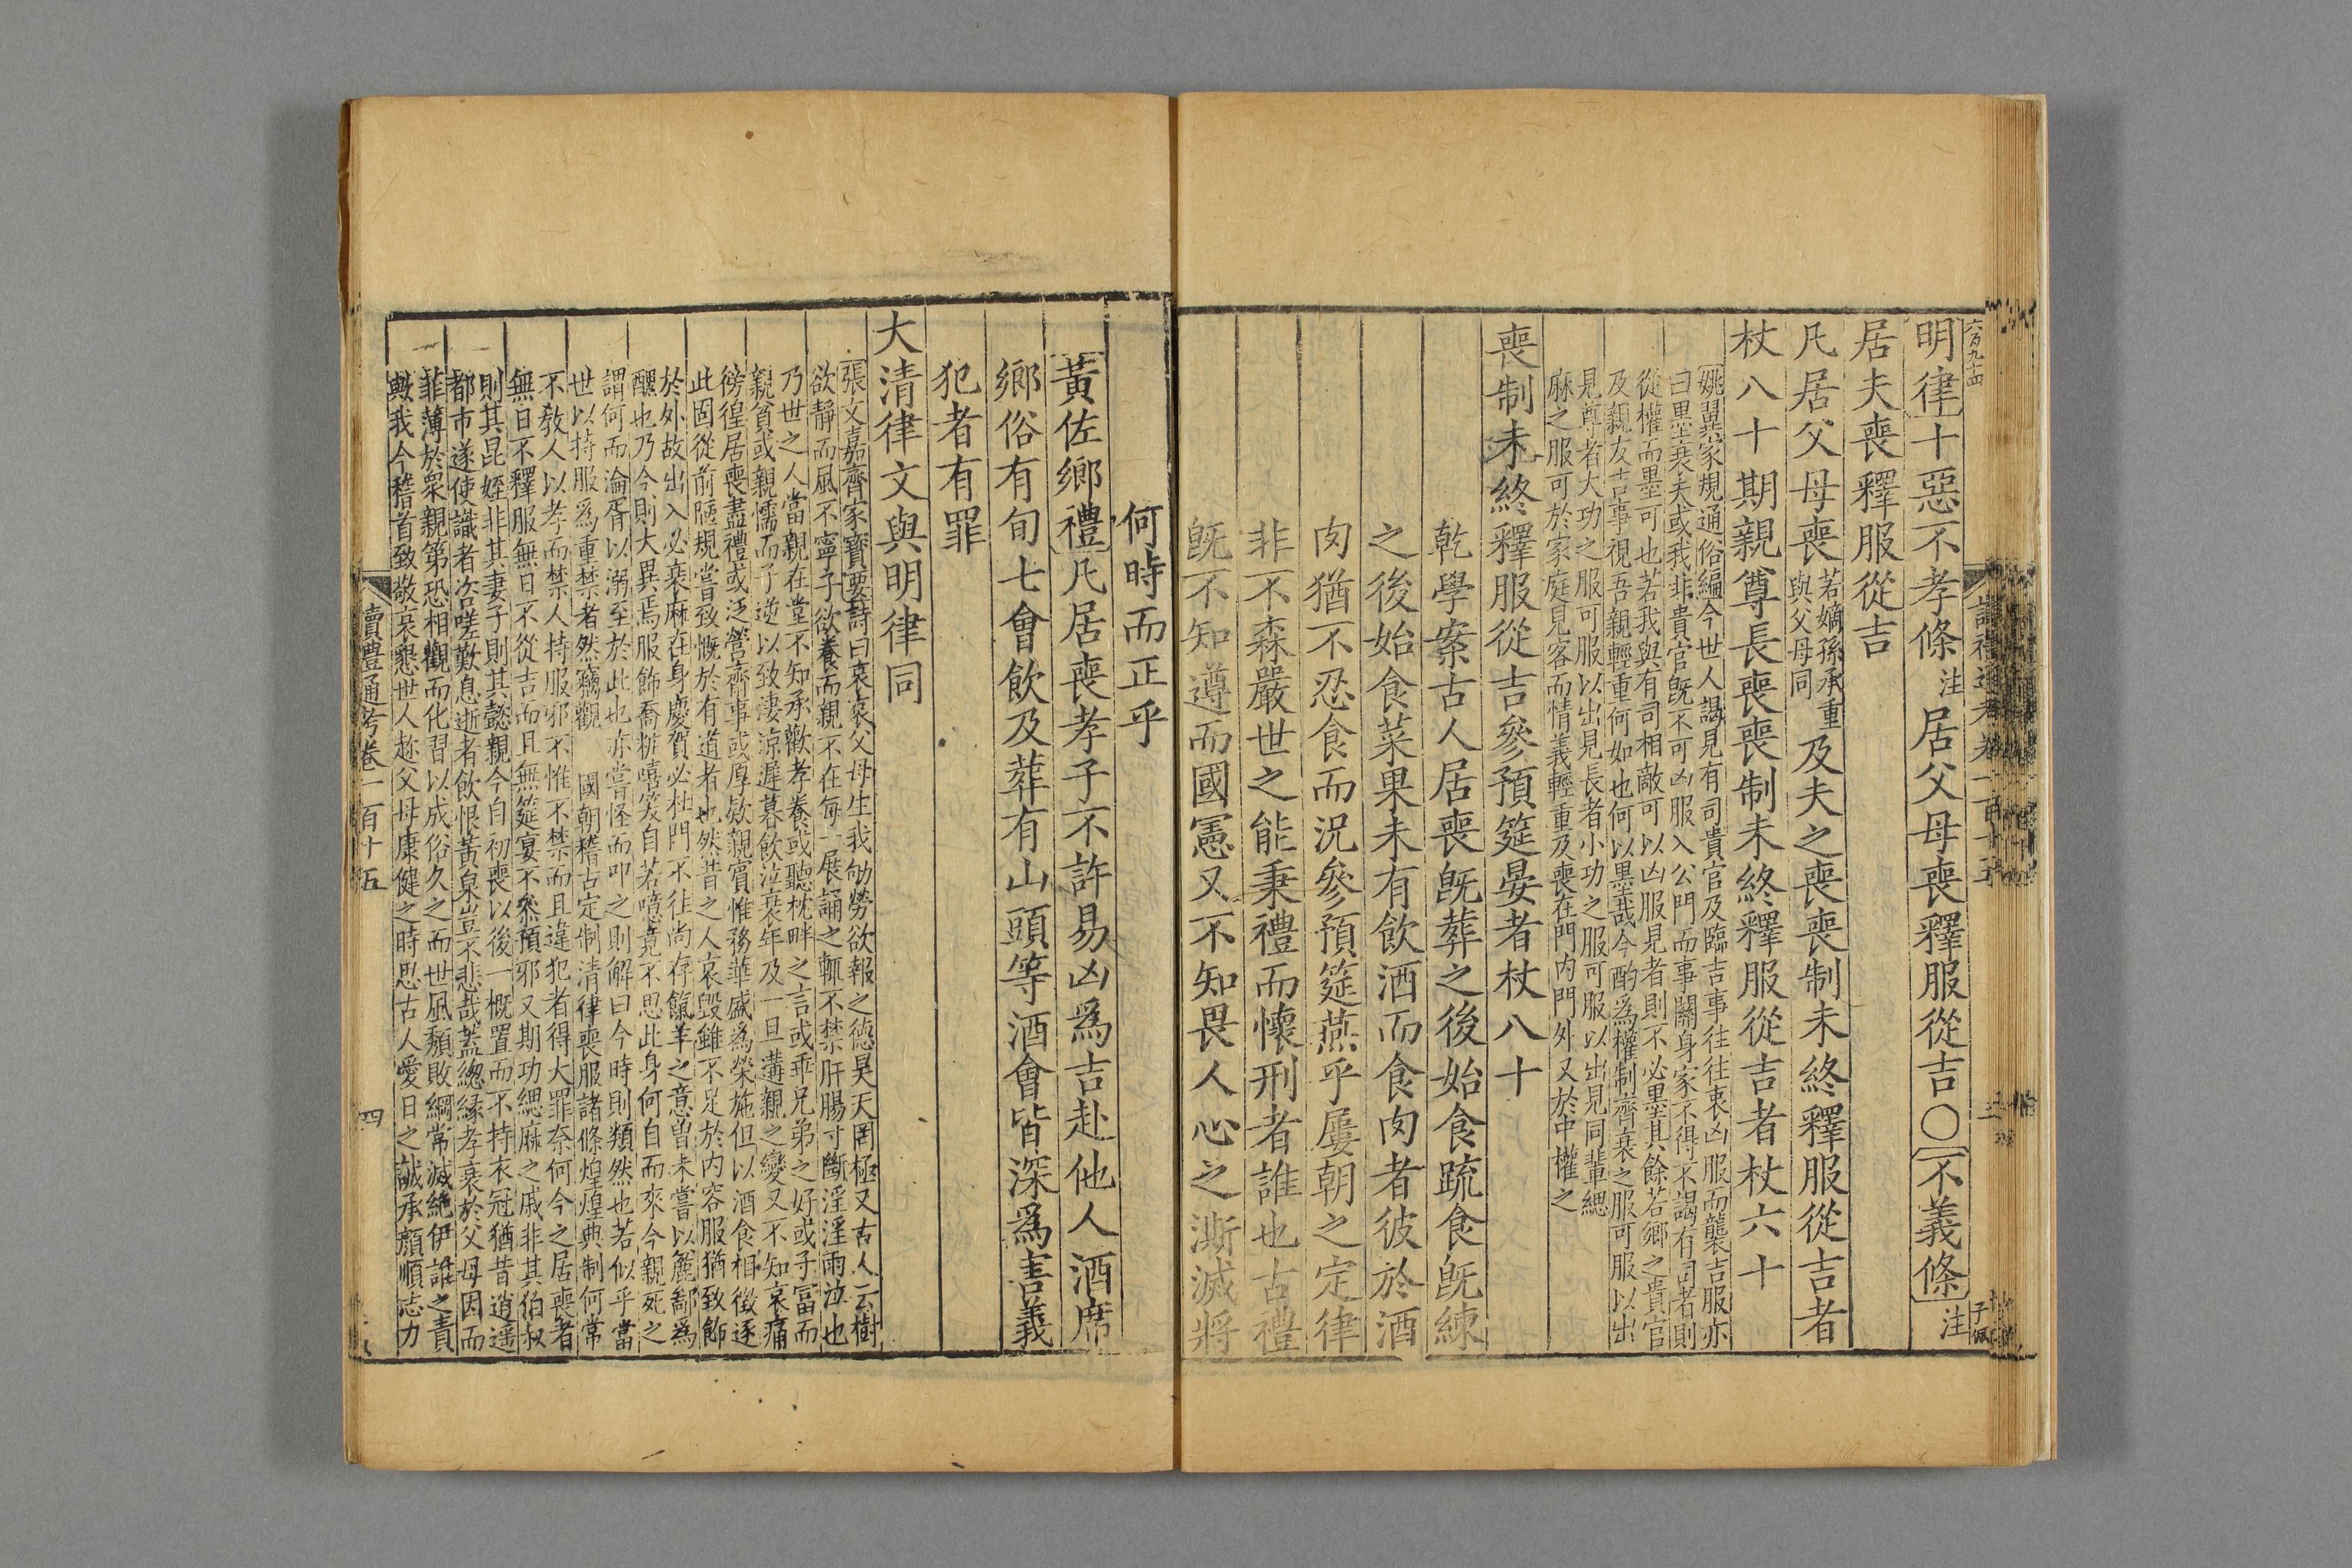 明律十惡不孝條注居父母喪釋服從吉〇不義條注
居夫喪釋服從吉
凡居父母喪若嫡孫承重與父母同及夫之喪喪制未終釋服從吉者
杖八十期親尊長喪喪制未終釋服從吉者杖六十
姚翼家規通俗編今世人謁見有司貴官及臨吉事往往衷凶服而襲吉服亦
曰墨衰夫或我非貴官旣不可凶服入公門而事關身家不得不謁有司者則
從權而墨可也若我與有司相敵可以凶服見者則不必墨其餘若鄉之貴官
及親友吉事視吾親輕重何如也何以墨哉今酌爲權制齊衰之服可服以出
見尊者大功之服可服以出見長者小功之服可服以出見同輩緦
麻之服可於家庭見客而情義輕重及喪在門內門外又於中權之
喪制未終釋服從吉參預筵晏者杖八十
乾學案古人居喪旣葬之後始食疏食旣練
之後始食菜果未有飲酒而食肉者彼於酒
肉猶不忍食而況參預筵燕乎屢朝之定律
非不森嚴世之能秉禮而懷刑者誰也古禮
旣不知遵而國憲又不知畏人心之澌滅將
何時而正乎
黃佐鄉禮凡居喪孝子不許易凶爲吉赴他人酒席
鄉俗有旬七會飲及葬有山頭等酒會皆深爲害義
犯者有罪
大清律文與明律同
張文嘉齊家寶要詩曰哀哀父母生我劬勞欲報之德昊天罔極又古人云樹
欲靜而風不寧子欲養而親不在每一展誦之輒不禁肝腸寸斷淫淫雨泣也
乃世之人當親在堂不知承歡孝養或聽枕畔之言或乖兄弟之好或子富而
親貧或親懦而子逆以致淒涼遲暮飲泣衰年及一旦遘親之變又不知哀痛
徬徨居喪盡禮或泛營齊事或厚欵親賓惟務華盛爲榮施但以酒食相徵逐
此固從前陋規嘗致慨於有道者也然昔之人哀毀雖不足於內容服猶致飾
於外故出入必衰麻在身慶賀必杜門不往尚存餼羊之意曾未嘗以麄鄙爲
醜也乃今則大異焉服飾喬粧嘻笑自若噫竟不思此身何自而來今親死之
謂何而淪胥以溺至於此也亦嘗怪而叩之則解曰今時則類然也若似乎當
世以持服爲重禁者然竊觀 國朝稽古定制清律喪服諸條煌煌典制何常
不敎人以孝而禁人持服邪不惟不禁而且違犯者得大罪奈何今之居喪者
無日不釋服無日不從吉而且無筵宴不叅預邪又期功緦麻之戚非其伯叔
則其昆姪非其妻子則其懿親今自初喪以後一概置而不持衣冠猶昔逍遥
都市遂使識者咨嗟歎息逝者飲恨黃泉豈不悲哉蓋緫緣孝衰於父母因而
菲薄於衆親第恐相觀而化習以成俗久之而世風頹敗綱常滅絶伊誰之責
歟我今稽首致敬哀懇世人趂父母康健之時思古人愛日之誠承顏順志力
讀禮通考卷一百十五
四